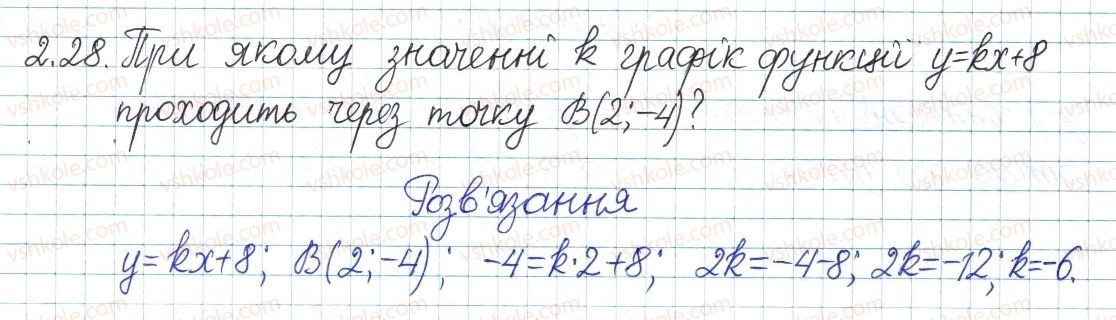 2.28. При якому значенні k графік функції y=kx+8
проходить через точку B(2;-4)?
Розв'язання
y=kx+8; B(2;-4); -4=k·2+8; 2k=-4-8; 2k=-12; k=-6.